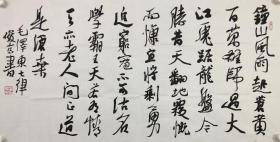 鐘山風雨起蒼黄
百萬雄師過大
江虎踞龍盤今
勝昔天翻地覆慨
而慷宜將剩勇
追窮寇不可沽名
學霸王天若有情
天亦老人間正道
是滄桑
毛澤東七律
書